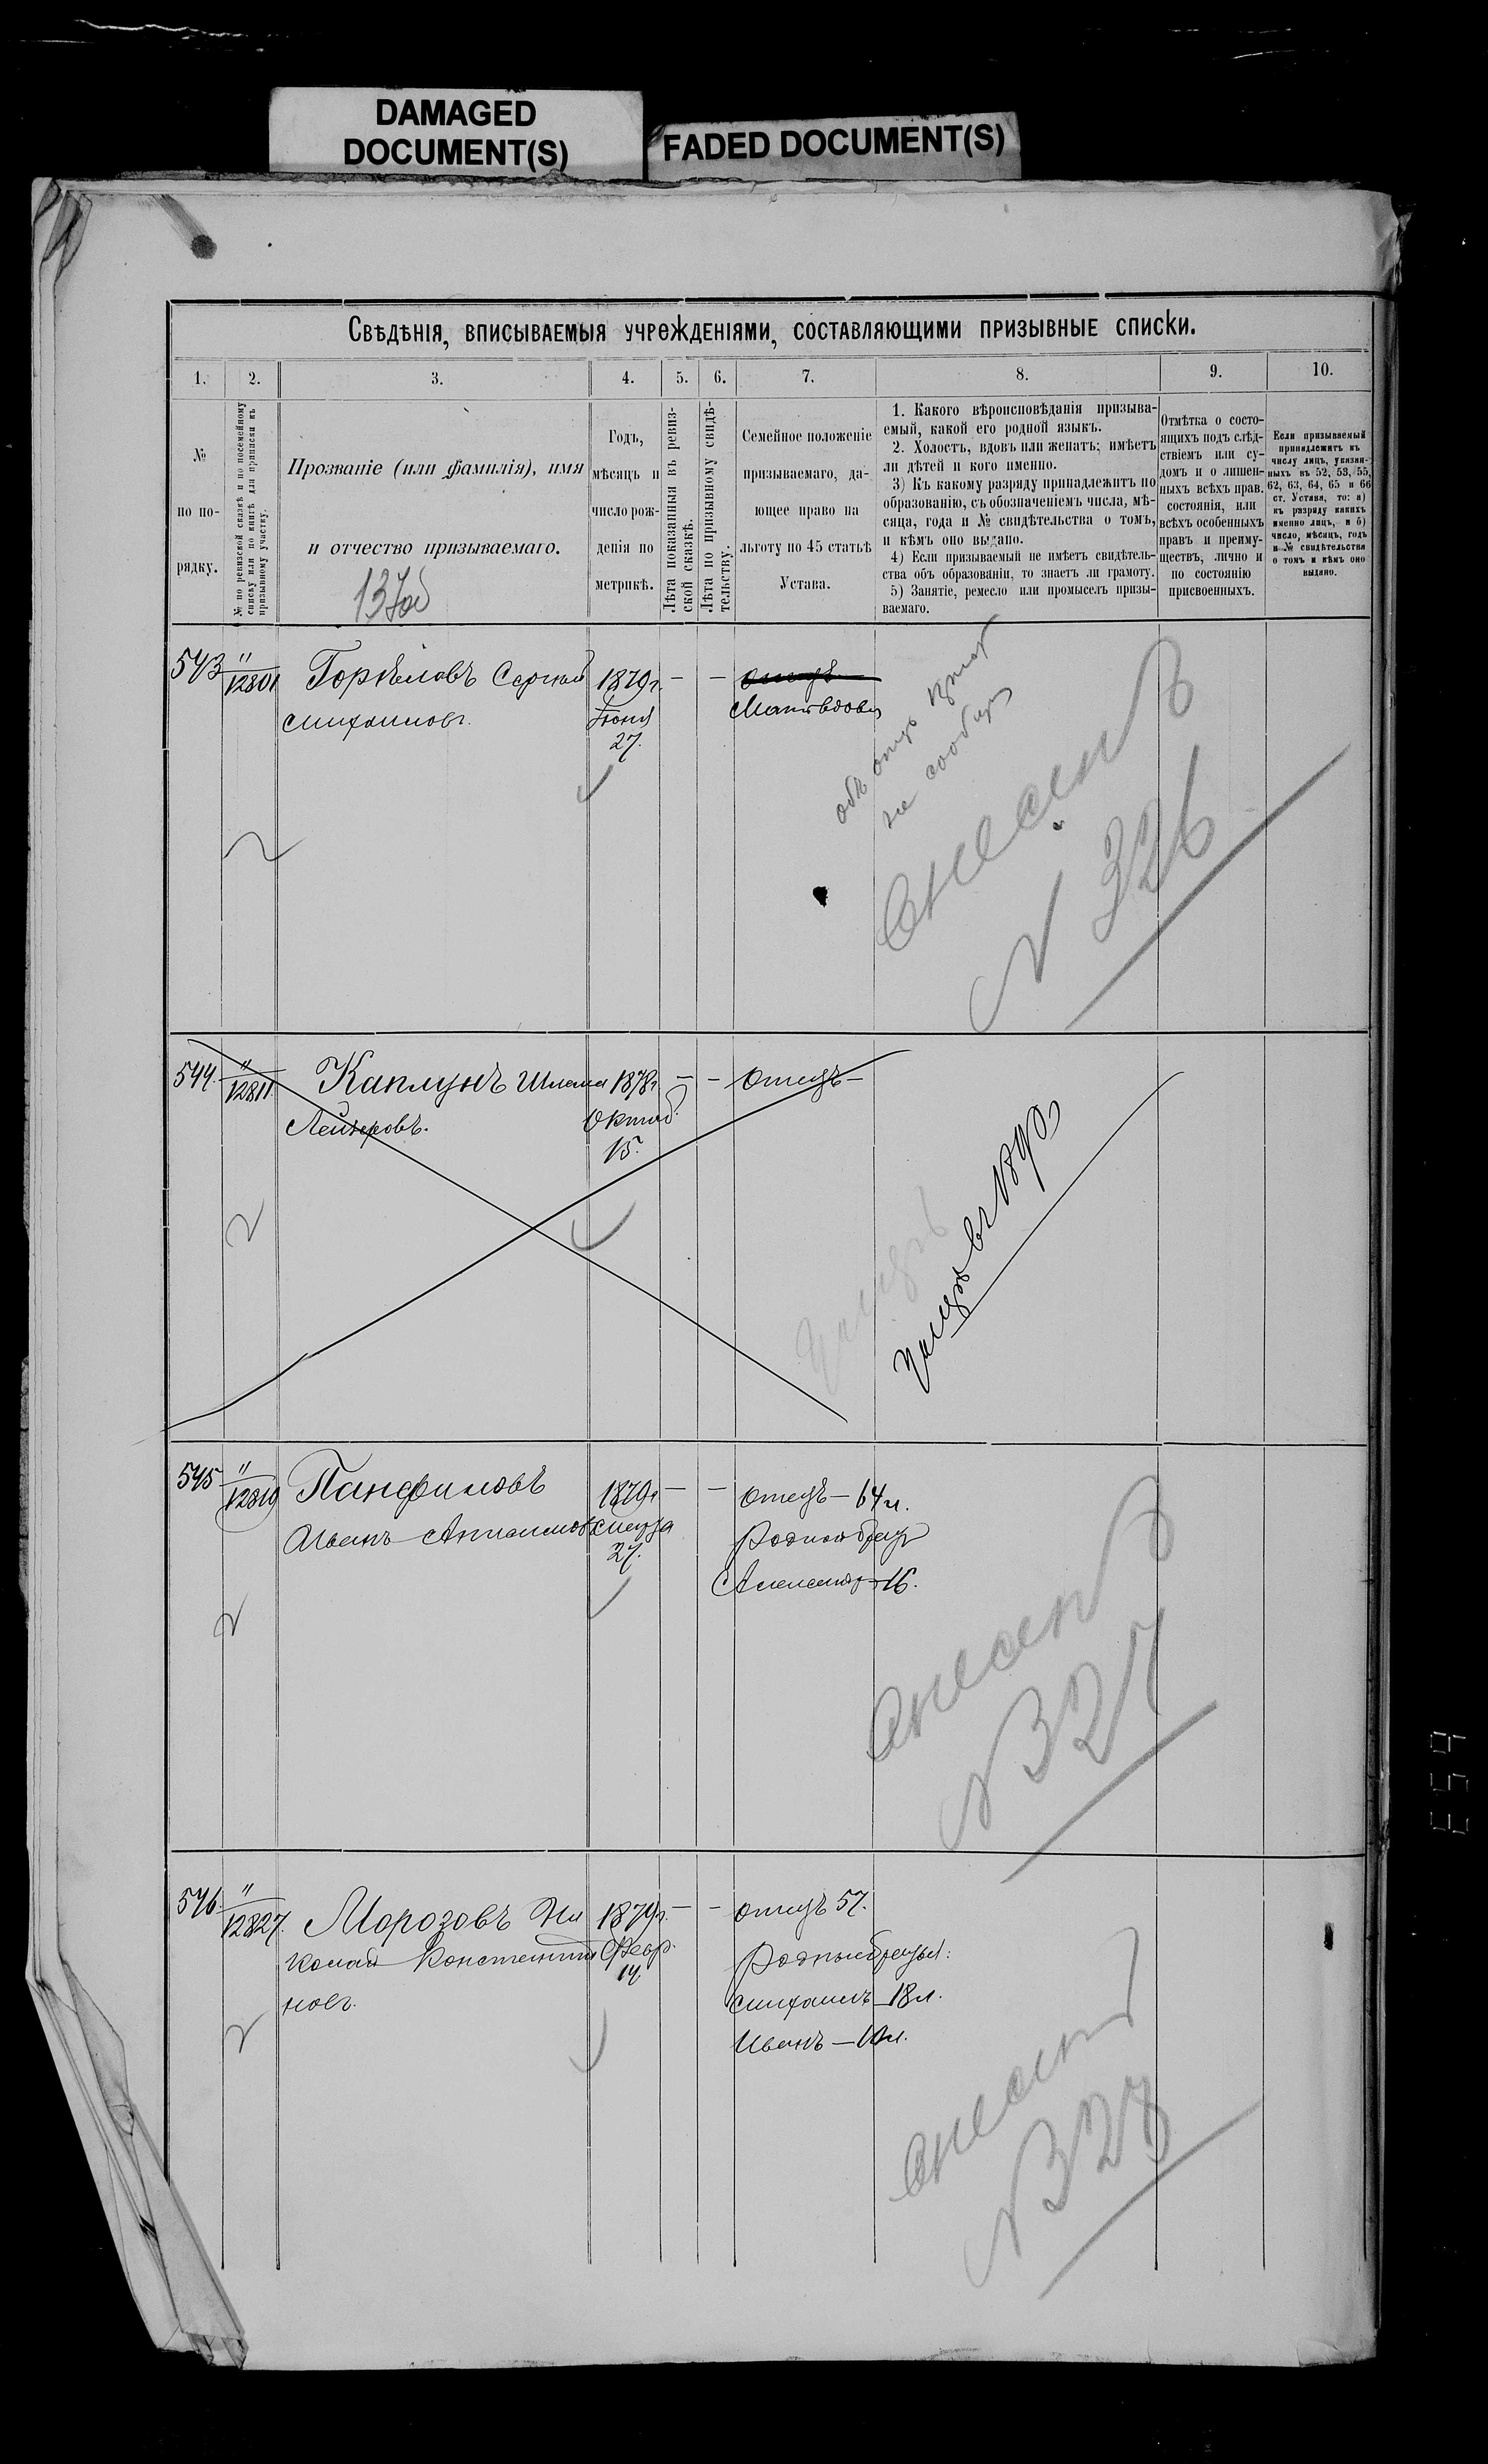 DAMAGED
DOCUMENT(S)
FADED DOCUMENT(S)
Свѣдѣнія, вписываемыя учрежденіями, составляющими призывные списки.
1. 2. 3. 4. 5. 6. 7. 8. 9. 10.
№
по по-
рядку.
№ по ревизской сказкѣ и по посемейному
списку или по книгѣ для приписки къ
призывному участку.
Прозваніе (или фамилія), имя
и отчество призываемаго.
Годъ,
мѣсяцъ и
число рож-
денія по
метрикѣ.
Лѣта показанныя въ ревиз-
ской сказкѣ.
Лѣта по призывному свидѣ-
тельству.
Семейное положеніе
призываемаго, да-
ющее право на
льготу по 45 статьѣ
Устава.
1. Какого вѣроисповѣданія призыва-
емый, какой его родной языкъ.
2. Холостъ, вдовъ или женатъ; имѣетъ
ли дѣтей и кого именно.
3) Къ какому разряду принадлежитъ по
образованію, съ обозначеніемъ числа, мѣ-
сяца, года и № свидѣтельства о томъ,
и кѣмъ оно выдано.
4) Если призываемый не имѣетъ свидѣтель-
ства объ образованіи, то знаетъ ли грамоту.
5) Занятіе, ремесло или промыселъ призы-
ваемаго.
Отмѣтка о состо-
ящихъ подъ слѣд-
ствіемъ или су-
домъ и о лишен-
ныхъ всѣхъ прав.
состоянія, или
всѣхъ особенныхъ
правъ и преиму-
ществъ, лично и
по состоянію
присвоенныхъ.
Если призываемый
принадлежитъ къ
числу лицъ, указан-
ныхъ въ 52, 53, 55,
62, 63, 64, 65 и 66
ст. Устава, то: а)
къ разряду какихъ
именно лицъ, и б)
число, мѣсяцъ, годъ
и № свидѣтельства
о томъ и кѣмъ оно
выдано.
543 " 12801 Горѣловъ Сергѣй 1879г. – – отецъ
Михаиловъ. Іюня Мать вдова
27.
объ отцѣ
не сообщ
Внесенъ
N 326
544. " 12811. Каплунъ Шлема 1878г. – – отецъ –
Лейзеровъ. Октяб.
15.
545 " 12819 Панфиловъ 1879г – – отецъ – 64 л.
Иванъ Марта Родной братъ
27. Александръ – 16.
Внесенъ
N 327
546. " 12827. Морозовъ Ни 1879г. – – отецъ 57.
колай Константи Февр. Родные братья:
новъ. 14. Михаилъ – 18 л.
Иванъ – 10 л.
Внесенъ
N 328
659